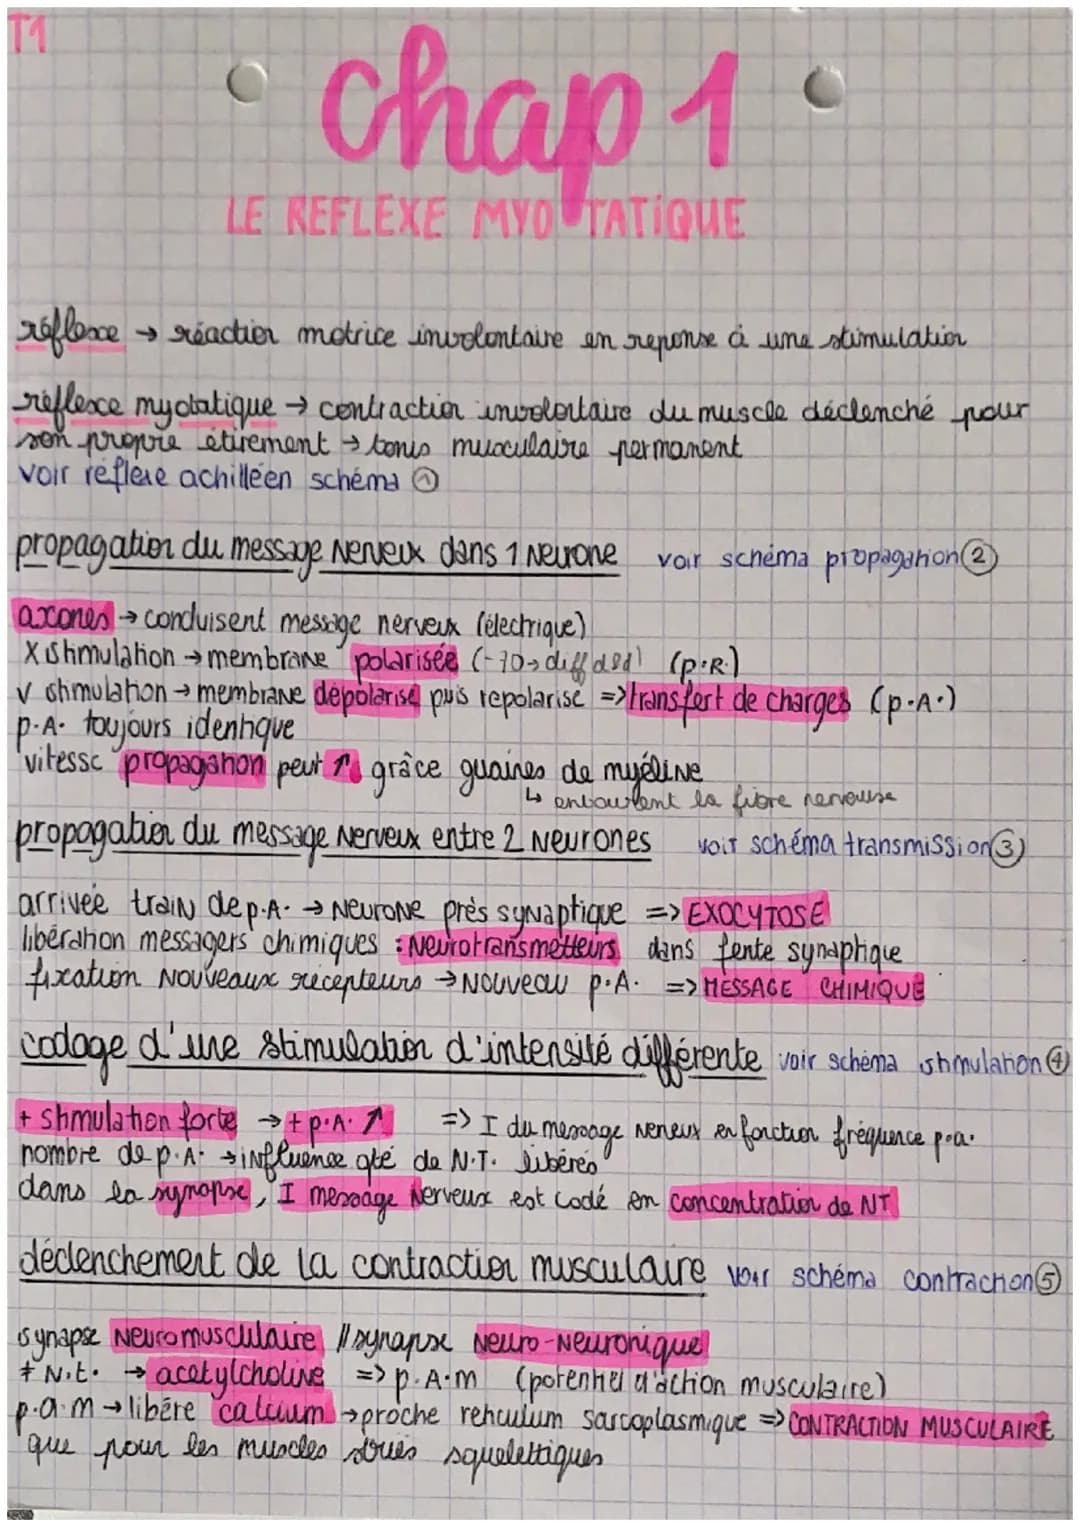 T1
Chap 1
LE REFLEXE MYOTATIQUE
réflexe → réaction motrice involontaire en reponse à une stimulation
réflexe myotatique → contraction involontaire du muscle déclenché pour
son propre étirement → tonus musculaire permanent
voir réflexe achilléen schéma ①
propagation du message nerveux dans 1 neurone voir schéma propagation ②
axones → conduisent message nerveux (électrique)
X stimulation → membrane polarisée (-70 → diff ddd) (p.R.)
v stimulation → membrane dépolarise puis repolarise => transfert de charges (p.A.)
p.A. toujours identique
vitesse propagation peut ↑ grâce guaines de myéline
↳ entourent la fibre nerveuse
propagation du message nerveux entre 2 neurones voir schéma transmission ③
arrivée train de p.A. → neurone près synaptique => EXOCYTOSE
libération messagers chimiques : neurotransmetteurs dans fente synaptique
fixation nouveaux récepteurs → nouveau p.A. => MESSAGE CHIMIQUE
codage d'une stimulation d'intensité différente voir schéma stimulation ④
+ stimulation forte → + p.A. ↑ => I du message nerveux en fonction fréquence p.a.
nombre de p.A. → influence qté de N.T. libérés
dans la synapse, I message nerveux est codé en concentration de NT
déclenchement de la contraction musculaire voir schéma contraction ⑤
synapse neuromusculaire // synapse neuro-neuronique
≠ N.t. → acetylcholine => p.A.m (potentiel d'action musculaire)
p.a.m → libére calcium → proche rehculum sarcoplasmique => CONTRACTION MUSCULAIRE
que pour les muscles striés squelettiques